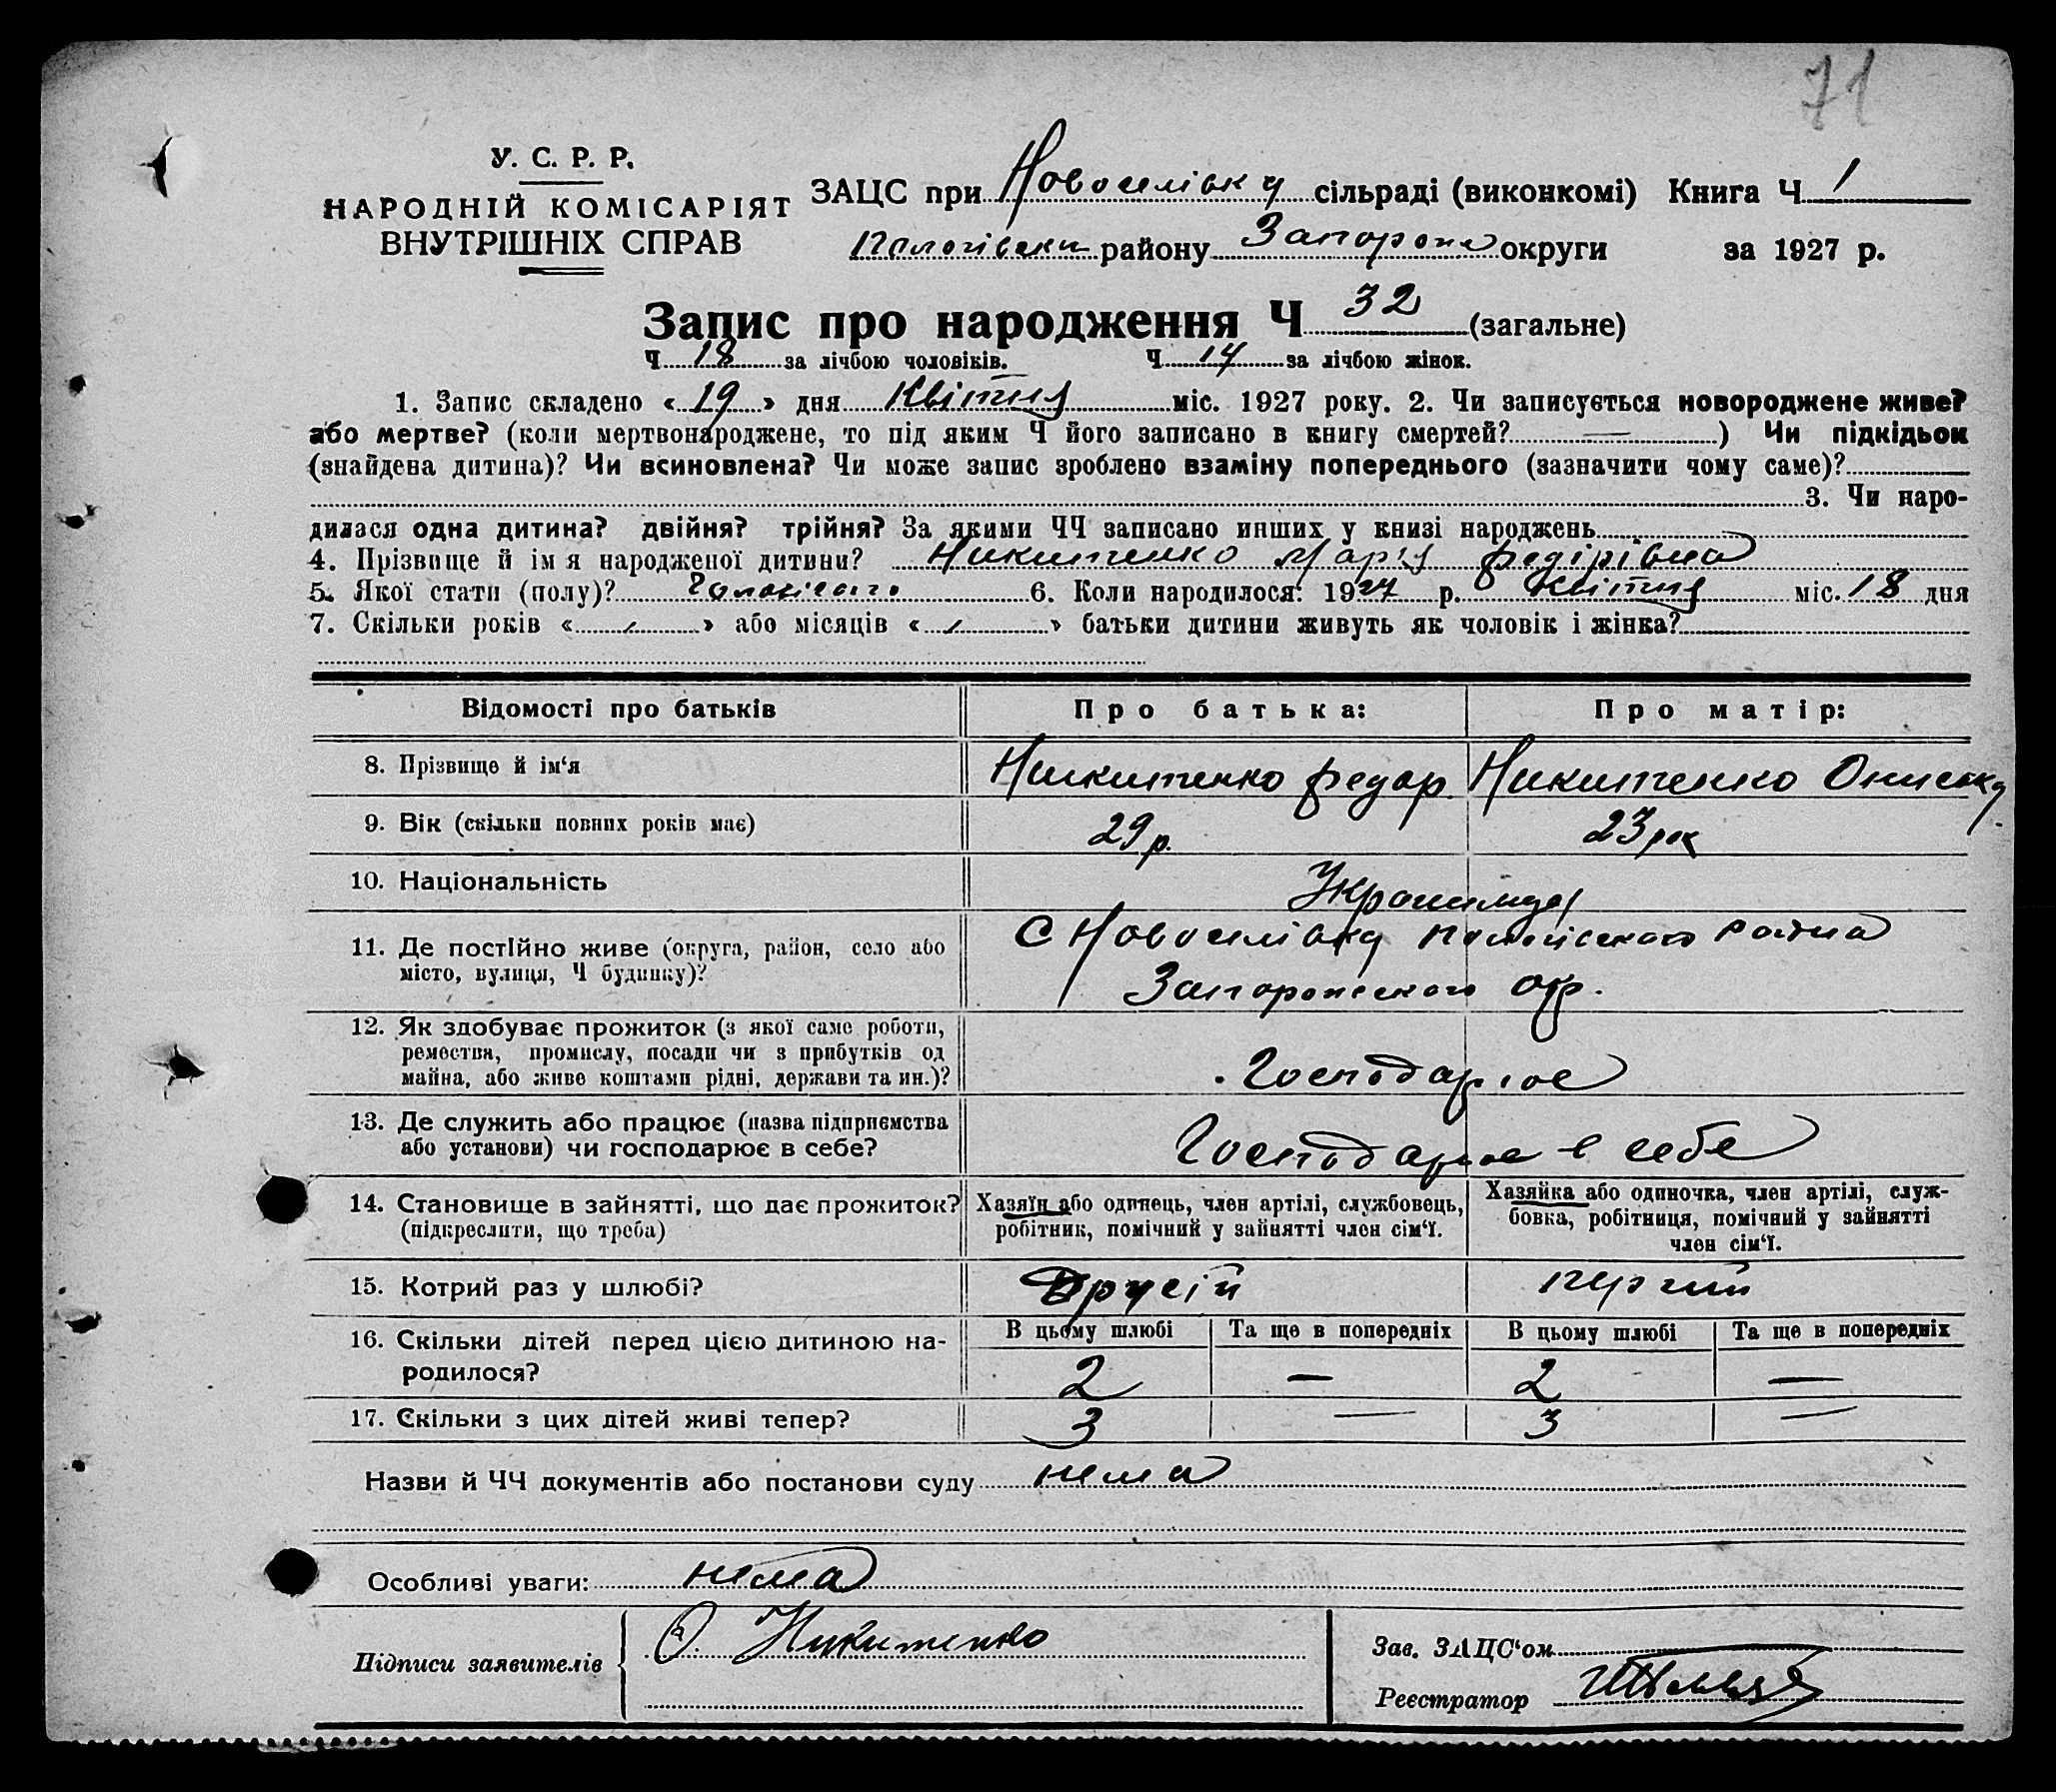 71
У. С. Р. Р.
НАРОДНІЙ КОМІСАРІЯТ
ВНУТРІШНІХ СПРАВ
ЗАЦС при Новоселівку сільраді (виконкомі) Книга Ч 1
Пологівски району Запорожс округи за 1927 р.
Запис про народження Ч 32 (загальне)
Ч 18 за лічбою чоловіків. Ч 14 за лічбою жінок.
1. Запис складено « 19 » дня Квітня міс. 1927 року. 2. Чи записується новороджене живе?
або мертве? (коли мертвонароджене, то під яким Ч його записано в книгу смертей? — ) Чи підкідьок
(знайдена дитина)? Чи всиновлена? Чи може запис зроблено взаміну попереднього (зазначити чому саме)?
3. Чи наро-
дилася одна дитина? двійня? трійня? За якими ЧЧ записано инших у книзі народжень
4. Прізвище й ім я народженої дитини? Никитенко Марія Федірівна
5. Якої стати (полу)? 6. Коли народилося: 1927 р. Квітня міс. 18 дня
7. Скільки років « » або місяців « » батьки дитини живуть як чоловік і жінка?
Відомості про батьків Про батька: Про матір:
8. Прізвище й ім‘я Никитенко Федор Никитенко
9. Вік (скільки повних років має) 29 р. 23 рок
10. Національність
11. Де постійно живе (округа, район, село або С Новоселівку Пологівского района
місто, вулиця, Ч будинку)? Запорожского окр.
12. Як здобуває прожиток (з якої саме роботи,
ремества, промислу, посади чи з прибутків од
майна, або живе коштами рідні, держави та ин.)? Господарює
13. Де служить або працює (назва підприємства
або установи) чи господарює в себе? Господарює в себе
14. Становище в зайнятті, що дає прожиток? Хазяїн або одинець, член артілі, службовець, Хазяйка або одиночка, член артілі, служ-
(підкреслити, що треба) робітник, помічний у зайнятті член сім‘ї. бовка, робітниця, помічний у зайнятті
член сім‘ї.
15. Котрий раз у шлюбі? Другій перший
16. Скільки дітей перед цією дитиною на- В цьому шлюбі Та ще в попередніх В цьому шлюбі Та ще в попередніх
родилося? 2 — 2 —
17. Скільки з цих дітей живі тепер? 3 — 3 —
Назви й ЧЧ документів або постанови суду нема
Особливі уваги: нема
Підписи заявителів О. Никитенко
Зав. ЗАЦС‘ом
Реєстратор